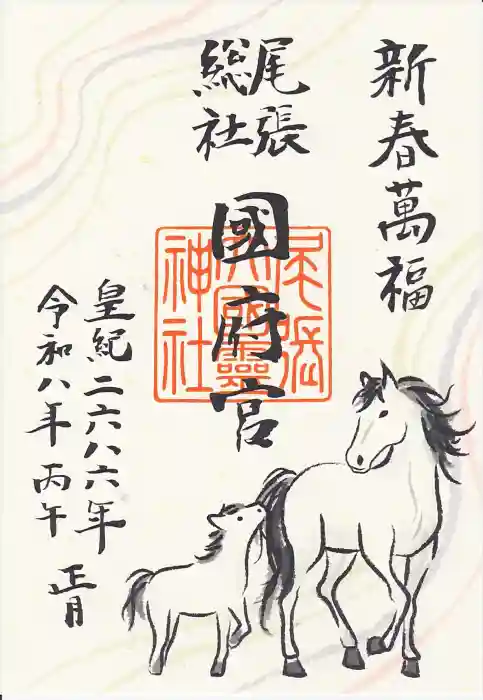 新春萬福
尾張
総社
國府宮
尾張
大國霊
神社
皇紀二六八六年
令和八年 丙午
正月